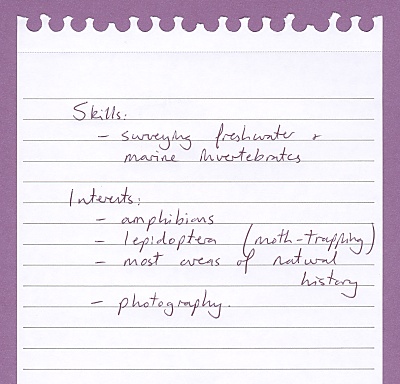 Skills:
- surveying freshwater +
marine invertebrates
Interests:
- amphibians
- lepidoptera (moth-trapping)
- most areas of natural
history
- photography.